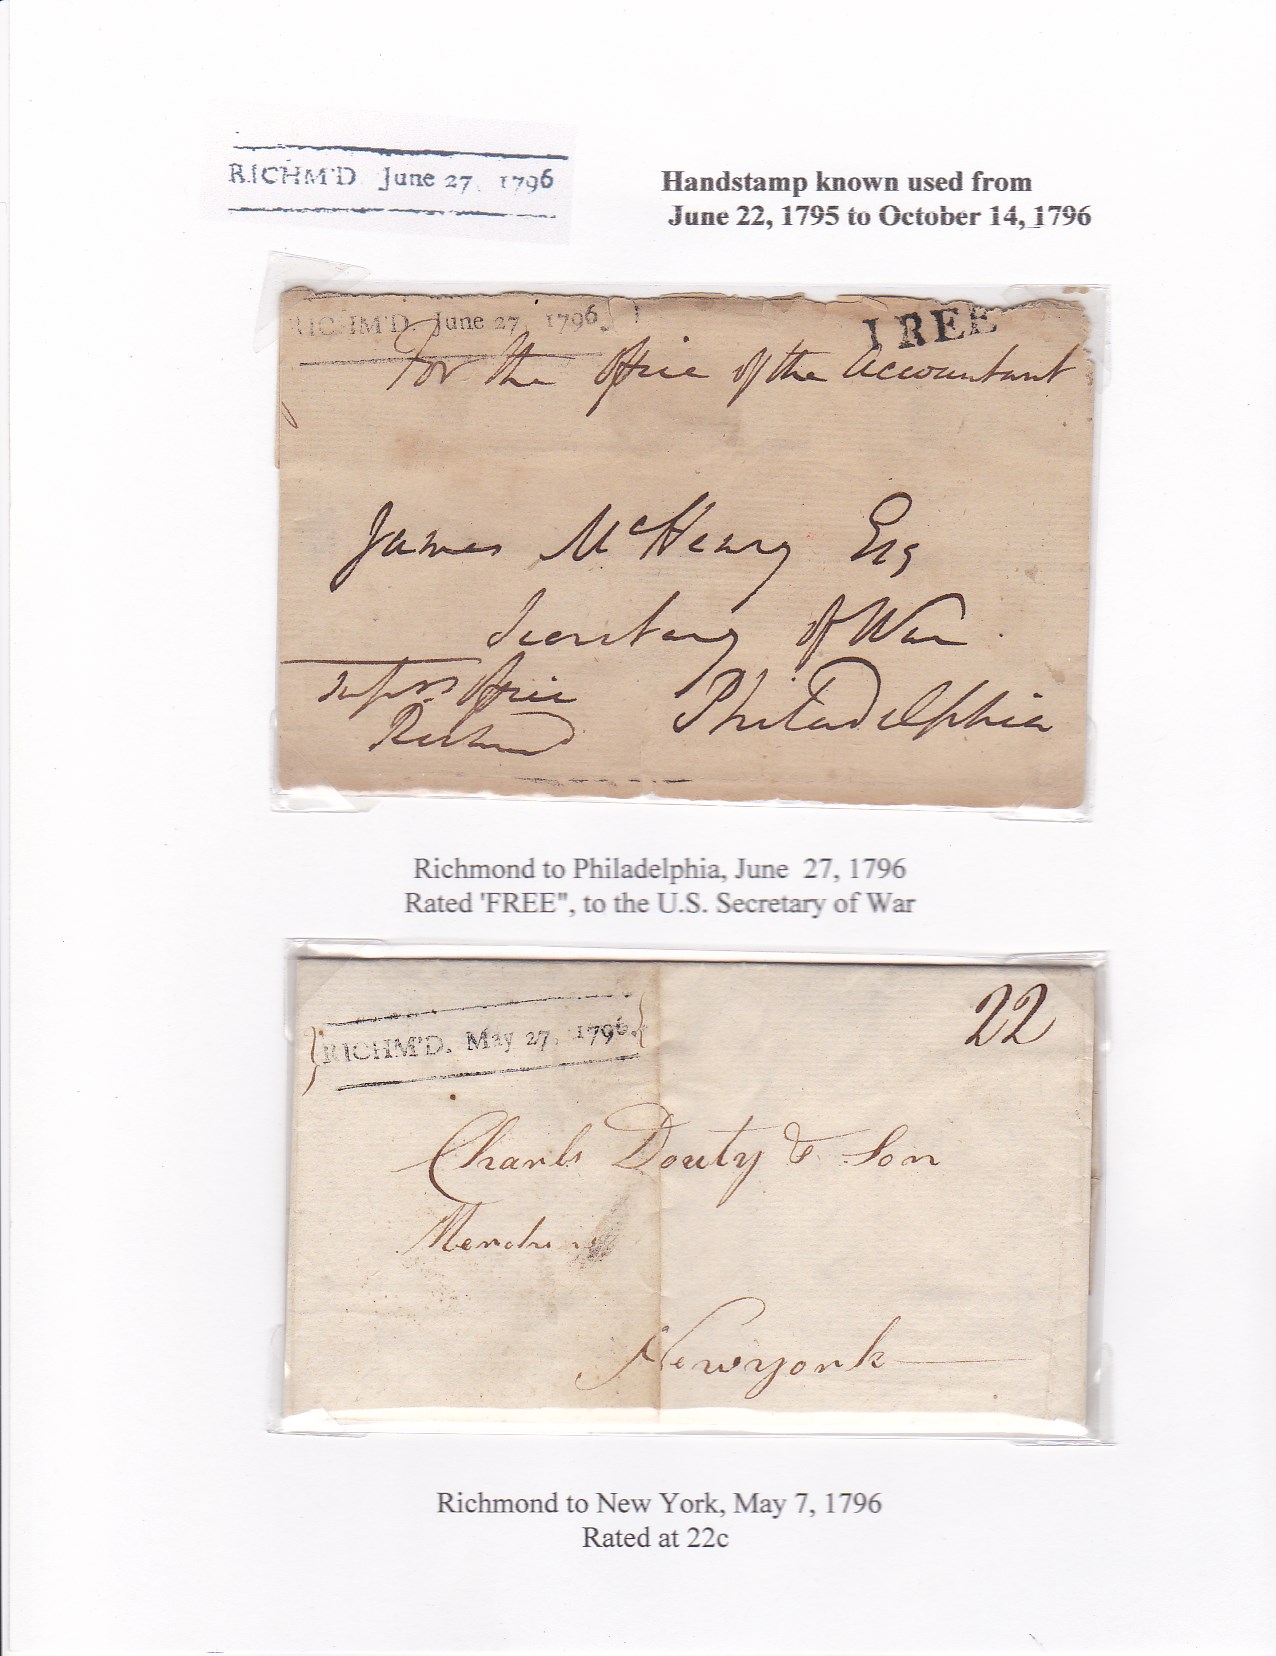 RICHM'D June 27, 1796
Handstamp known used from
June 22, 1795 to October 14, 1796
RICHM'D. June 27, 1796.
FREE
For the Office of the Accountant
James McHenry Esq
Secretary of War
Office
Richmond
Philadelphia
Richmond to Philadelphia, June 27, 1796
Rated 'FREE", to the U.S. Secretary of War
RICHM'D. May 27, 1796.
22
Charls Douty & Son
Newyork
Richmond to New York, May 7, 1796
Rated at 22c